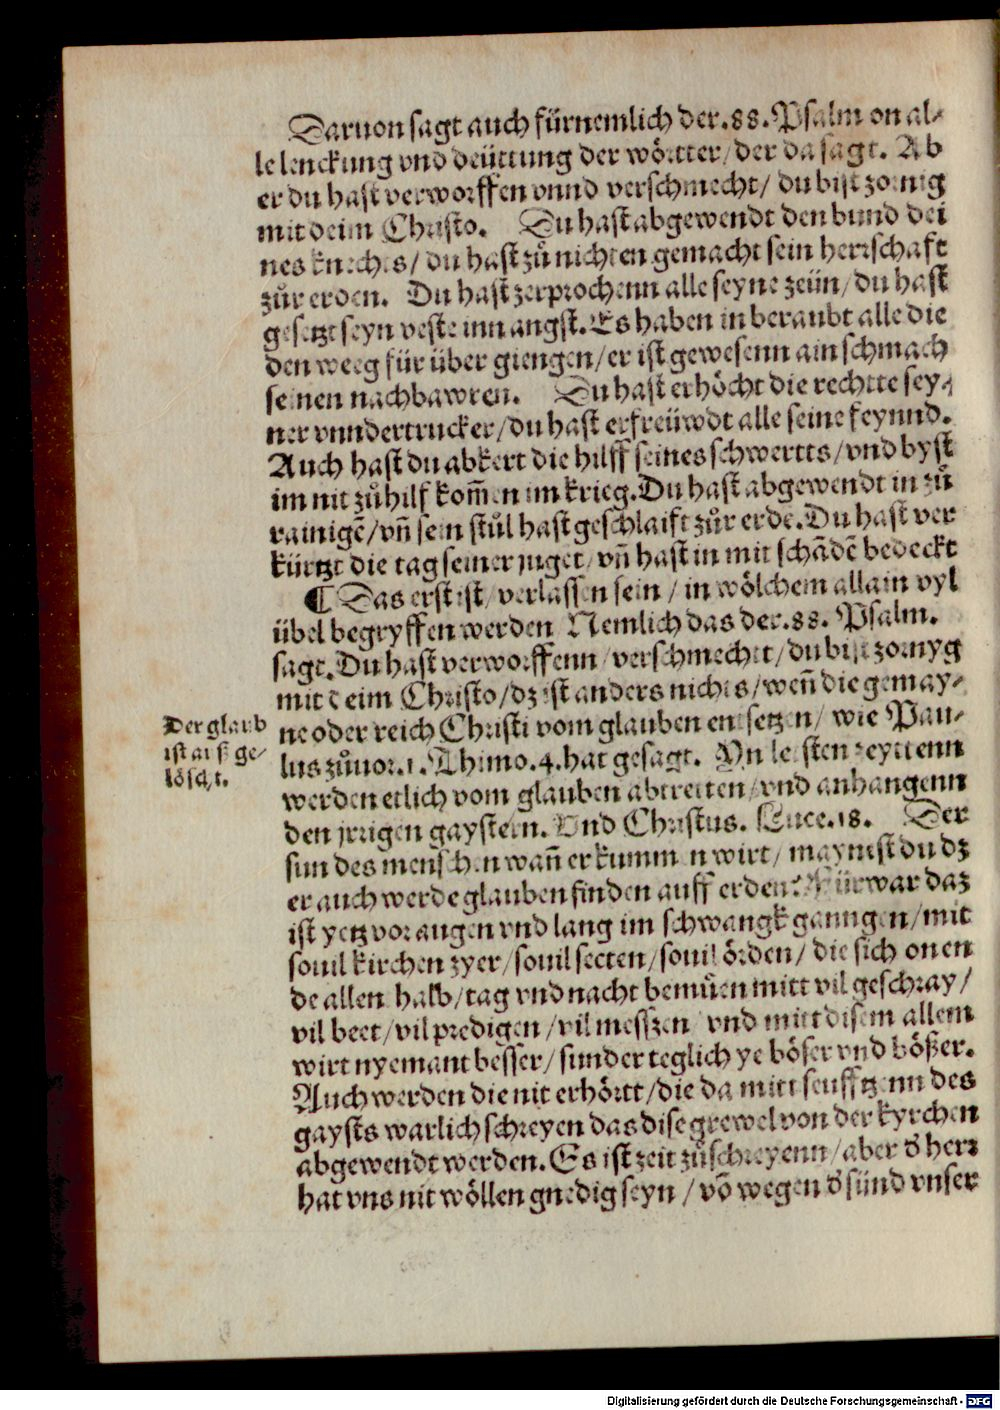 Daruon sagt auch fürnemlich der .88. Psalm on al⸗
le lenckung vnd deüttung der wörtter / der da sagt. Ab
er du hast verworffen vnnd verschmecht / du bist zornig
mit deim Christo. Du hast abgewendt den bund dei
nes knechts / du hast zů nichten gemacht sein herrschaft
zůr erden. Du hast zerprochenn alle seyne zeün / du hast
gesetzt seyn veste inn angst. Es haben in beraubt alle die
den weeg für über giengen / er ist gewesenn ain schmach
seinen nachbawren. Du hast erhöcht die rechtte sey⸗
ner vnndertrucker / du hast erfreüwdt alle seine feynnd.
Auch hast du abkert die hilff seines schwertts / vnd byst
im nit zů hilf kom̄en im krieg. Du hast abgewendt in zů
rainigē / vn̄ sein stůl hast geschlaift zůr erde. Du hast ver
kürtzt die tag seiner juget / vn̄ hast in mit schādē bedeckt
¶ Das erst ist / verlassen sein / in wölchem allain vyl
übel begryffen werden Nemlich das der .88. Psalm.
sagt. Du hast verworffenn / verschmechtt / du bist zornyg
mit deim Christo / dz ist anders nichts / wen̄ die gemay⸗
Der glaub
ist auß ge⸗
löscht.
ne oder reich Christi vom glauben entsetzen / wie Pau⸗
lus zůuor .1. Thimo. 4. hat gesagt. Yn letsten zeyttenn
werden etlich vom glauben abtretten / vnd anhangenn
den jrrigen gaystern. Vnd Christus. Luce. 18. Der
sun des menschen wan̄ er kummen wirt / maynist du dz
er auch werde glauben finden auff erden? Fürwar daz
ist yetz vor augen vnd lang im schwangk ganngen / mit
souil kirchen zyer / souil secten / souil örden / die sich on en
de allen halb / tag vnd nacht bemůen mitt vil geschray /
vil beet / vil predigen / vil messzen / vnd mitt disem allem
wirt nyemant besser / sunder teglich ye böser vnd bößer.
Auch werden die nit erhörtt / die da mitt seufftzenn des
gaysts warlich schreyen das dise grewel von der kyrchen
abgewendt werden. Es ist zeit zůschreyenn / aber d̕ herr
hat vns nit wöllen gnedig seyn / vō wegen d̕ sünd vnser
Digitalisierung gefördert durch die Deutsche Forschungsgemeinschaft - DFG